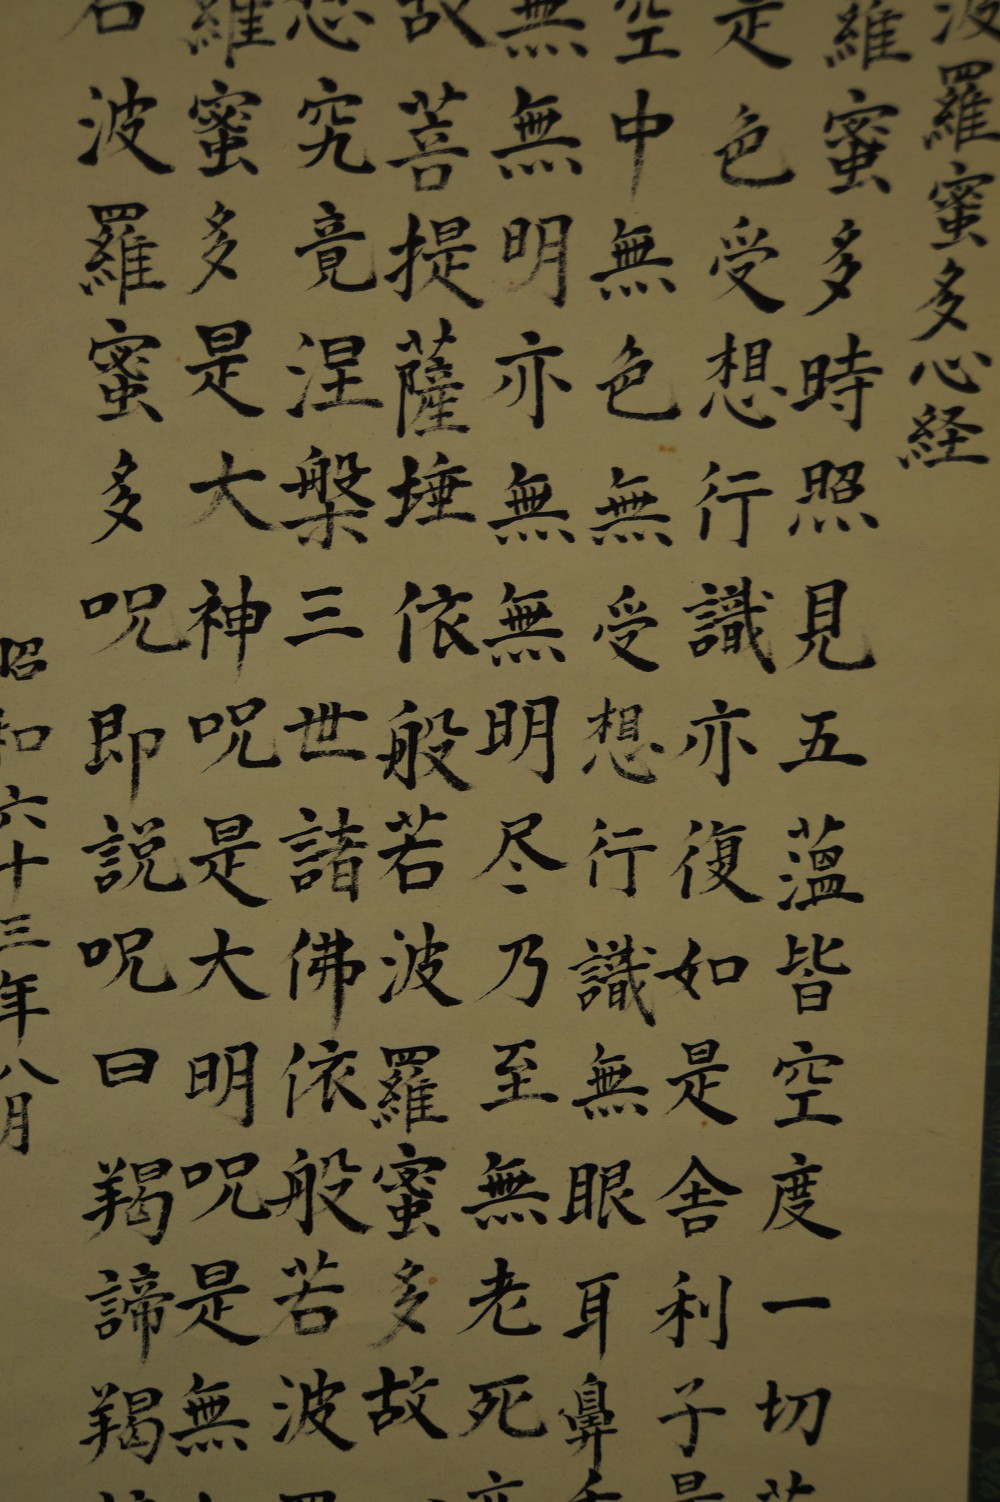 波羅蜜多心経
羅蜜多時照見五薀皆空度一切苦
是色受想行識亦復如是舎利子是
空中無色無受想行識無眼耳鼻舌
無無明亦無無明尽乃至無老死亦
故菩提薩埵依般若波羅蜜多故
想究竟涅槃三世諸佛依般若波羅
羅蜜多是大神呪是大明呪是無
若波羅蜜多呪即説呪曰羯諦羯諦
昭和六十三年八月